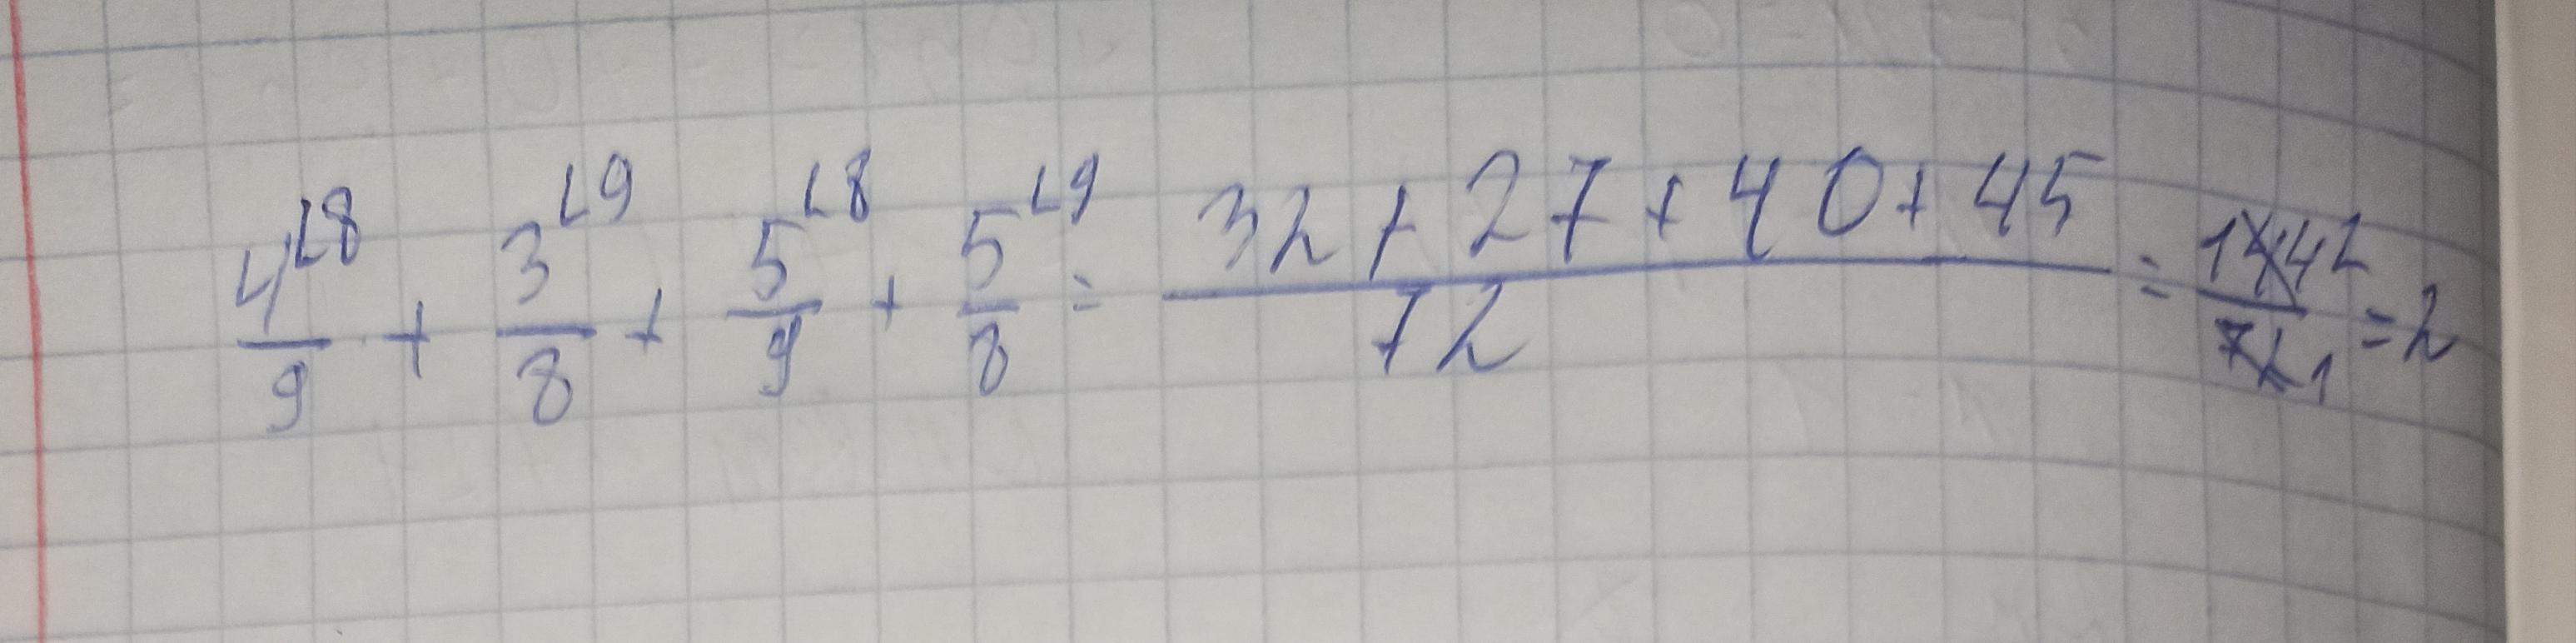 4⌊8/9 + 3⌊9/8 + 5⌊8/9 + 5⌊9/8 = 32 + 27 + 40 + 45/72 = 144 2/72 1 = 2